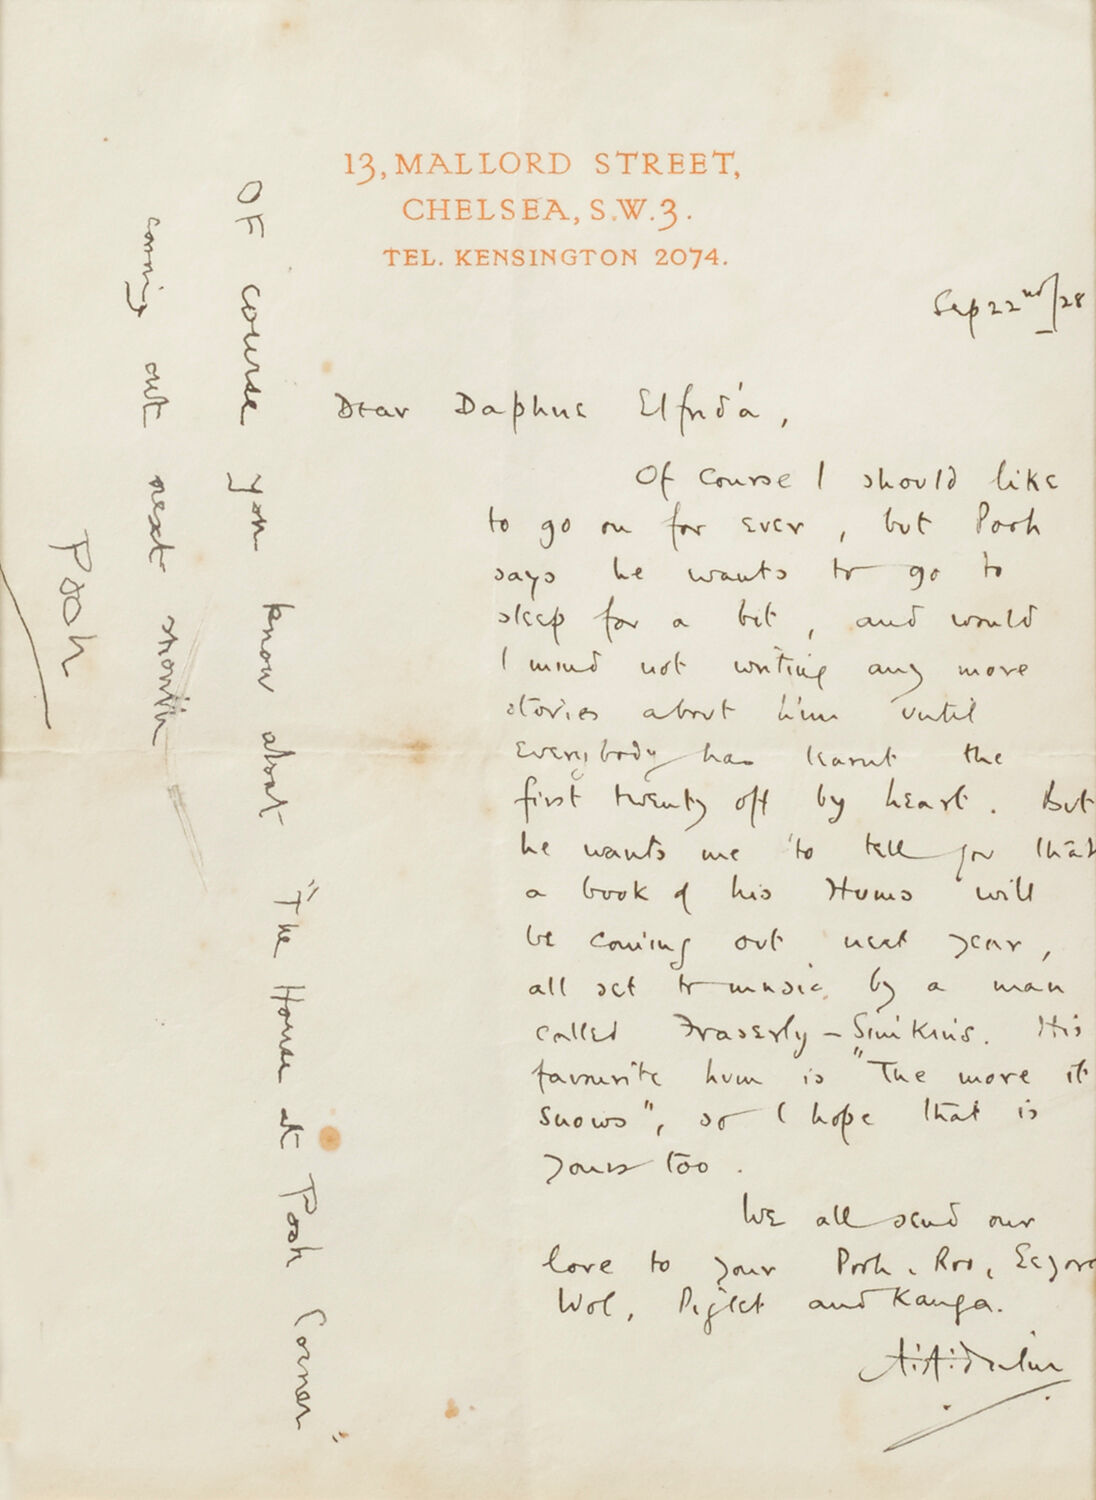 13, MALLORD STREET,
CHELSEA, S.W.3.
TEL. KENSINGTON 2074.
Sep 22nd/28
Dear Daphne Elfrida,
Of course I should like
to go on for ever, but Pooh
says he wants to go to
sleep for a bit, and would
I mind not writing any more
stories about him until
everybody has learnt the
first twenty off by heart. But
he wants me to tell you that
a book of his Hums will
be coming out next year,
all set to music by a man
called Fraserly-Simkins. His
favourite hum is "The more it
snows", so I hope that is
yours too.
We all send our
love to your Pooh, Roo, Eeyore
Wol, Piglet and Kanga.
A.A. Milne
OF course you know about "The House at Pooh Corner"
coming out next month
Pooh